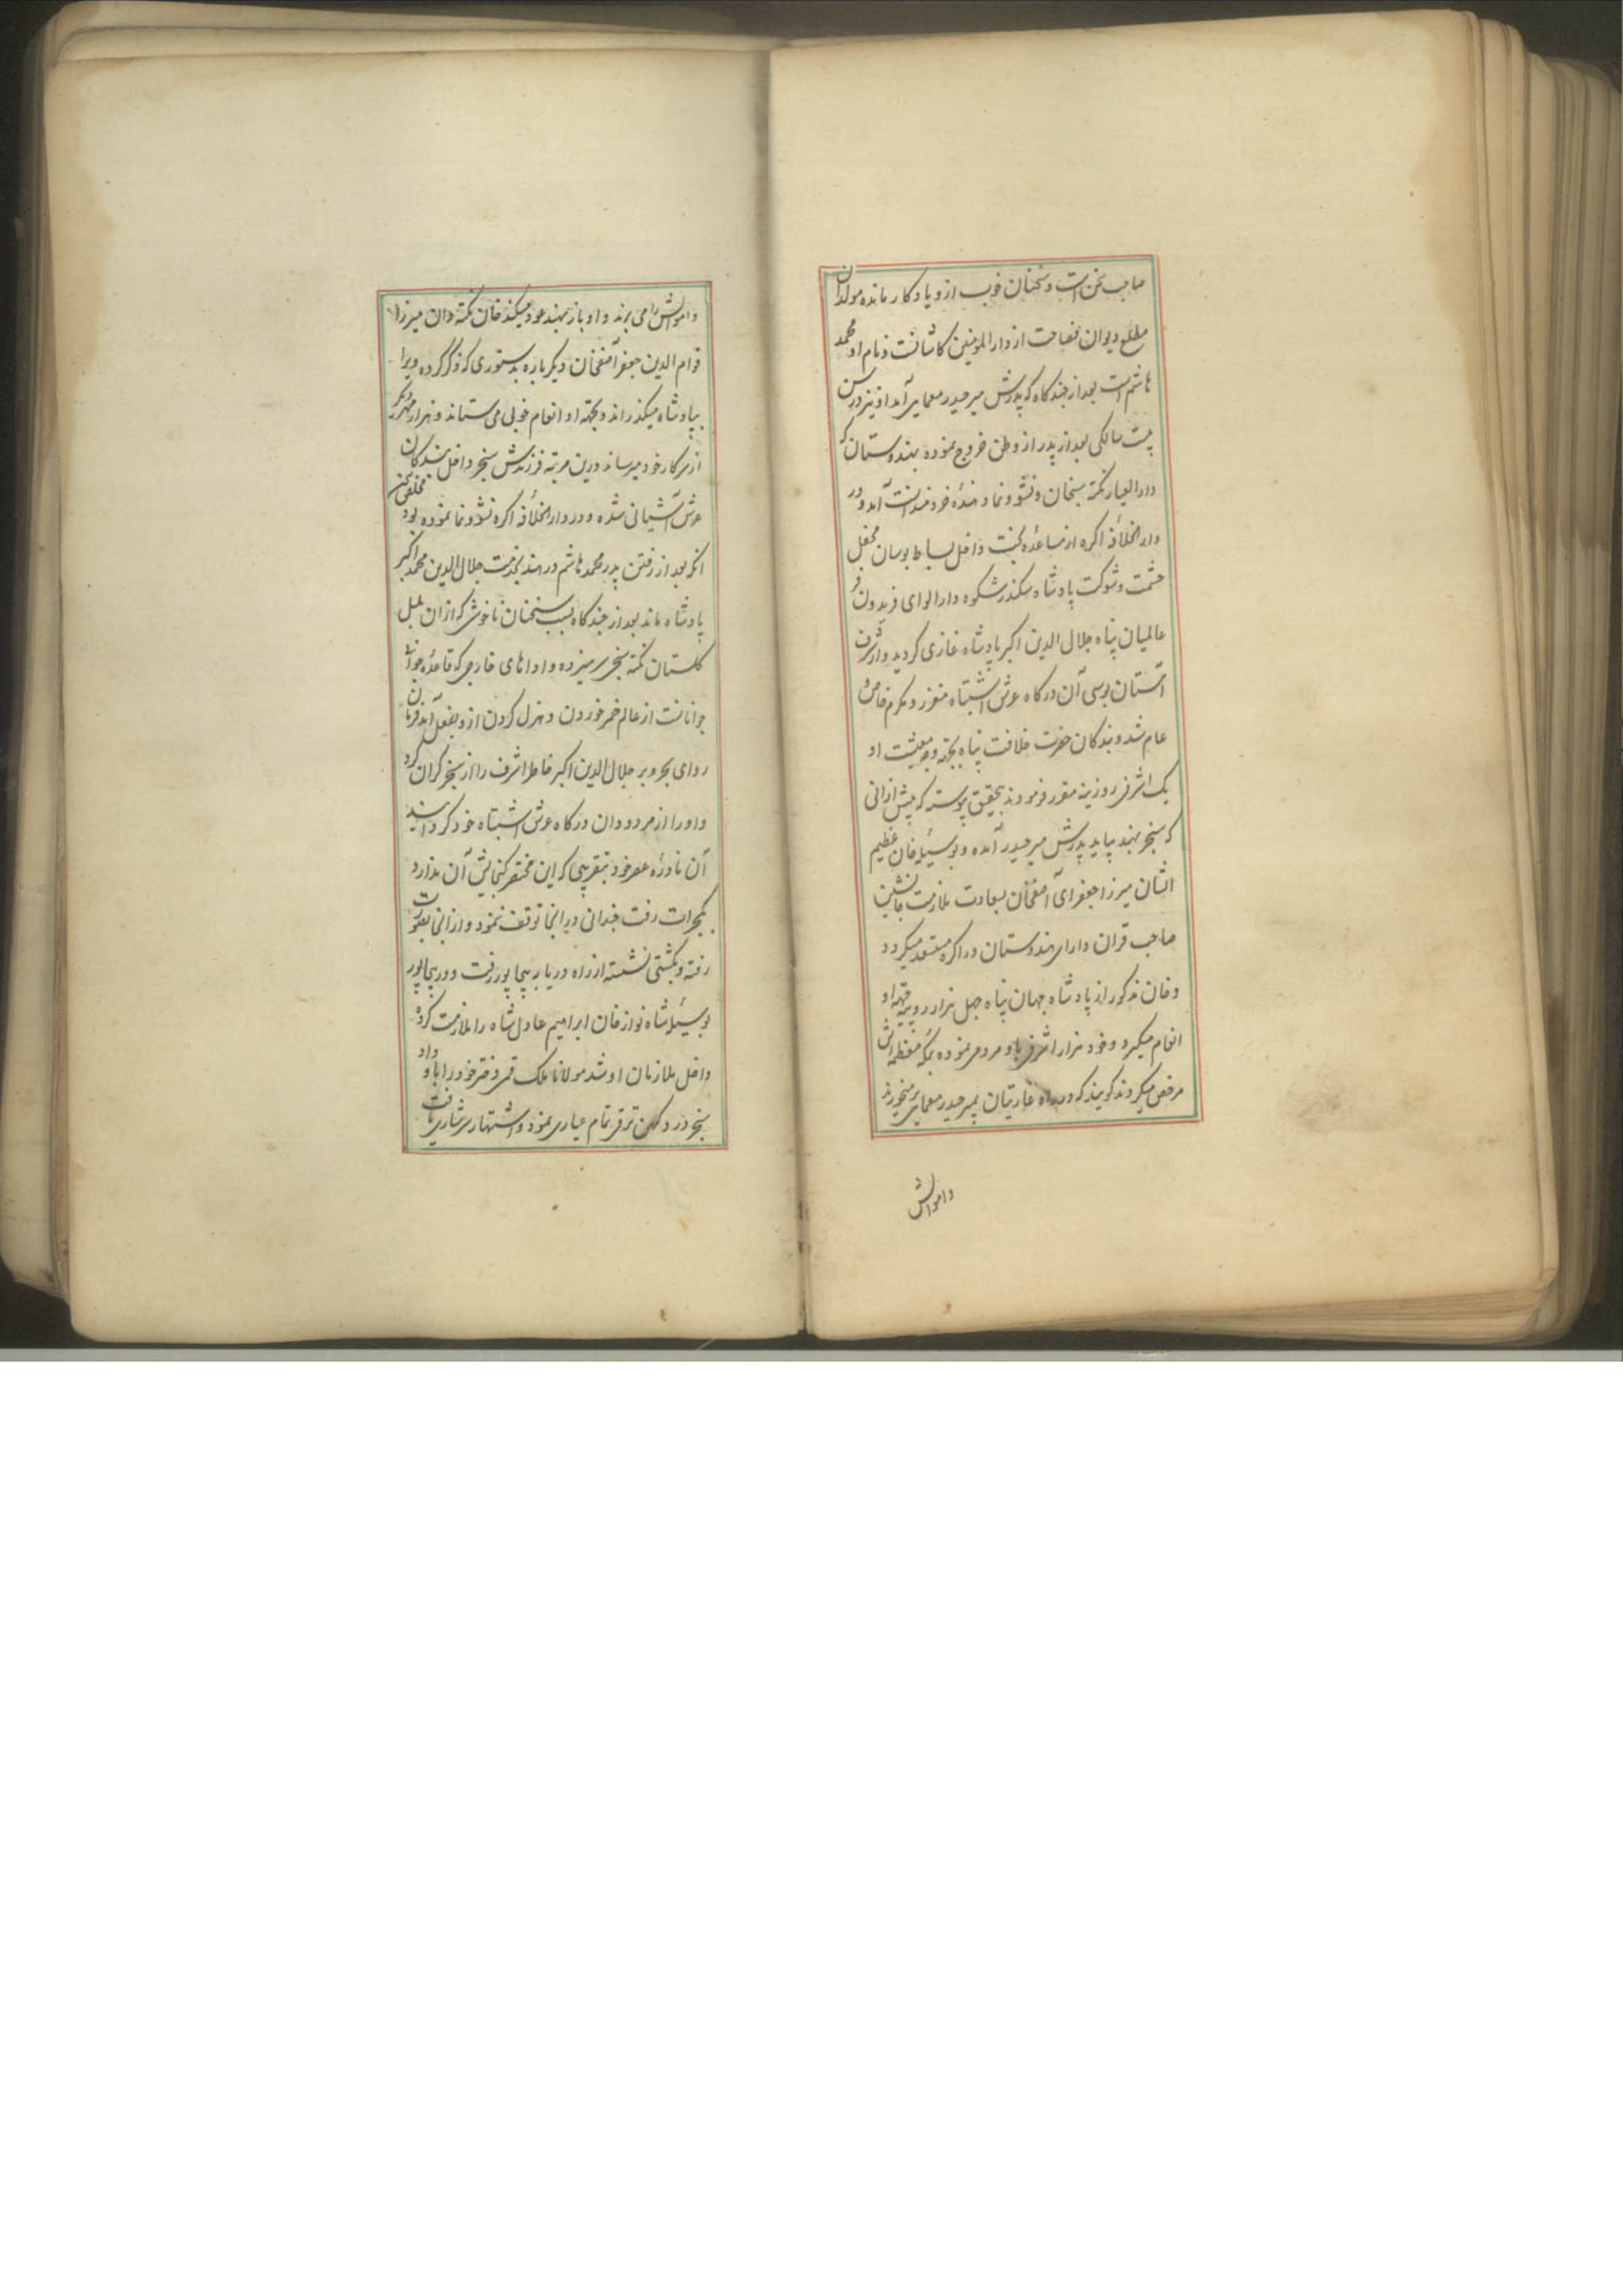 صاحب سخن است و سخنان خوب ازو یادکار مانده مولد آن
مطلع دیوان فصاحت از دار المومنین کاشانست و نام او محمد
هاشم است بعد از چندکاه که پدرش میر حیدر معمایی آمد او نیز در سن
بیست سالکی بعد از پدر از وطن خروج نموده بهندوستان که
دار العیار نکته سنجان و نشو و نما دهندهٔ خردمندانست آمد و در
دار الخلافه اکره از مساعدهٔ بخت داخل بساط بوسان محفل
حشمت و شوکت پادشاه سکندر شکوه دارا لوای فریدون فر
عالمیان پناه جلال الدین اکبر پادشاه غازی کردید و از شرف
آستان بوسی آن درکاه عرش اشتباه معزز و مکرم خاص و
عام شد و بندکان حضرت خلافت پناه بجهة وجه معیشت او
یک اشرفی روزینه مقرر فرمودند بتحقیق پیوسته که پیش ازانی
که سنجر بهند بیاید پدرش میر حیدر آمده و بوسیلهٔ خان عظیم
الشان میرزا جعفرای آصفخان بسعادت ملازمت جانشین
صاحب قران دارای هندوستان در اکره مستسعد میکردد
و خان مذکور از پادشاه جهان پناه چهل هزار روپیه بجهة او
انعام میکیرد و خود هزار اشرفی باو مردمی نموده بمکه معظمه اش
مرخص میکردند کویند که در راه غارتیان بمیر حیدر معمایی برمیخورند
و اموالش
و اموالش را می برند و او باز بهند عود میکند خان نکته دان میرزا
قوام الدین جعفر آصفخان دیکر باره بدستوری که ذکر کرده ویرا
بپادشاه میکذراند و بجهة او انعام خوبی می ستاند و هزار مهر دیکر
از سرکار خود میرساند درین مرتبه فرزندش سنجر داخل بندکان
عرش آشیانی شده و در دار الخلافه اکره نشو و نما نموده بود مخلص سخن
آنکه بعد از رفتن پدر محمد هاشم در هند بخدمت جلال الدین محمد اکبر
پادشاه ماند بعد از چندکاه بسبب سخنان ناخوش که ازان بلبل
کلستان نکته سنجی سر میزده و اداهای خارجی که قاعدهٔ جوانی
جوانانست از عالم خمر خوردن و هزل کردن ازو بفعل آمد فرمان
روای بحر و بر جلال الدین اکبر خاطر اشرف را از سنجر کران کرد
و او را از مردودان درکاه عرش اشتباه خود کردانید
آن نادرهٔ عصر خود بتقریبی که این مختصر کنجایش آن ندارد
بکجرات رفت چندانی در انجا توقف ننمود و از انجا بعورت
رفته و بکشتی نشسته از راه دریا به بیجاپور رفت و در بیجاپور
بوسیلهٔ شاه نواز خان ابراهیم عادل شاه را ملازمت کرد و
داخل ملازمان او شد مولانا ملک قمی دختر خود را باو داد
سنجر در دکهن ترقی تمام عیاری نمود و اشتهار سرشاری یافت